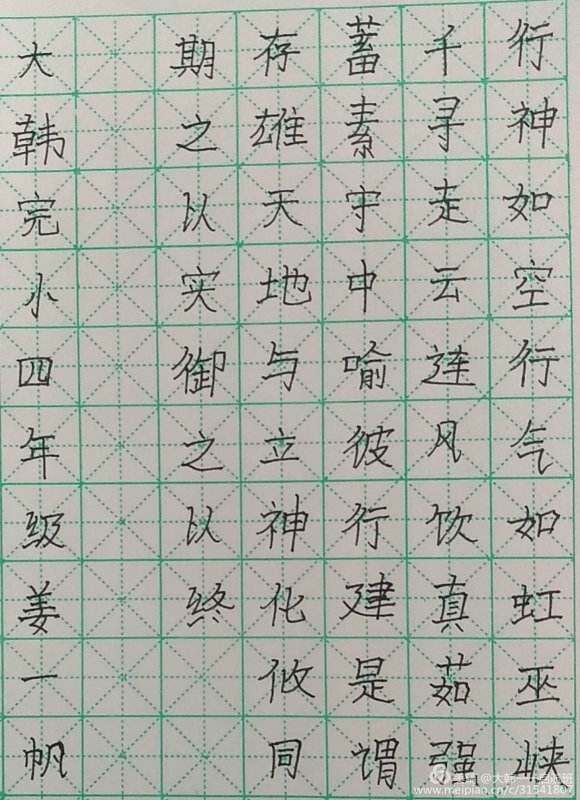 行神如空行气如虹巫峡
千寻走云连风饮真茹强
蓄素守中喻彼行建是谓
存雄天地与立神化攸同
期之以实御之以终
大韩完小四年级姜一帆
www.meipian.cn/c/31541807